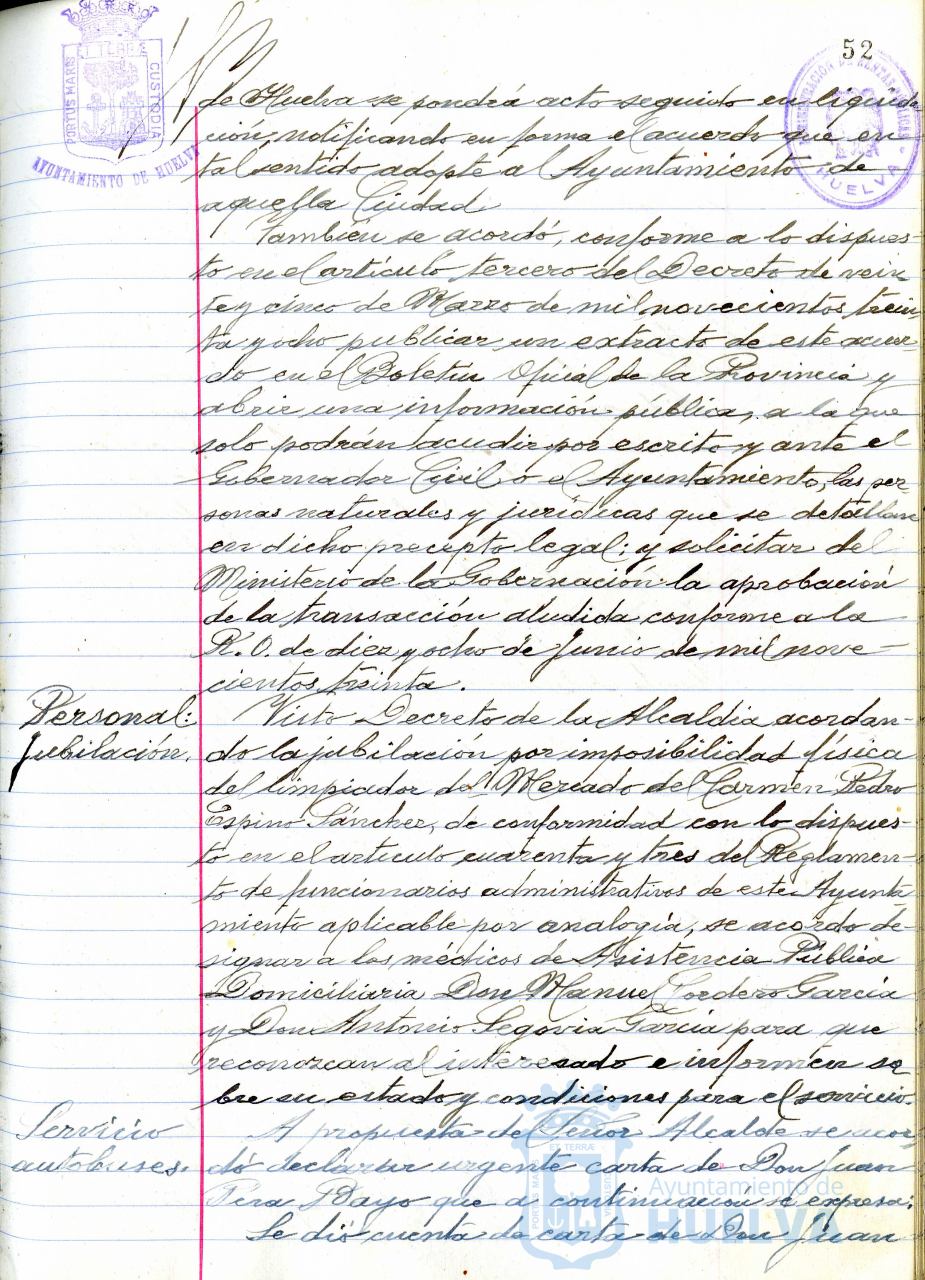 52
PORTUS MARIS ET TERRAE CUSTODIA
AYUNTAMIENTO DE HUELVA
ADMINISTRACIÓN DE RENTAS PÚBLICAS
HUELVA
de Huelva se pondrá acto seguido en liquida-
ción, notificando en forma el acuerdo que en
tal sentido adopte al Ayuntamiento de
aquella Ciudad
También se acordó, conforme a lo dispues-
to en el artículo tercero del Decreto de vein
te y cinco de Marzo de mil novecientos trein-
ta y ocho publicar un extracto de este acuer-
do en el Boletín Oficial de la Provincia y
abrir una información pública, a la que
solo podrán acudir por escrito y ante el
Gobernador Civil o el Ayuntamiento, las per-
sonas naturales y jurídicas que se detallan
en dicho precepto legal; y solicitar del
Ministerio de la Gobernación la aprobación
de la transacción aludida conforme a la
R. O. de diez y ocho de Junio de mil nove-
cientos treinta.
Personal:
Jubilación.
Visto Decreto de la Alcaldía acordan-
do la jubilación por imposibilidad física
del limpiador del Mercado del Carmen Pedro
Espino Sánchez, de conformidad con lo dispues-
to en el artículo cuarenta y tres del Reglamen-
to de funcionarios administrativos de este Ayunta
miento aplicable por analogía, se acordo de-
signar a los médicos de Asistencia Pública
Domiciliaria Don Manuel Cordero García
y Don Antonio Segovia García para que
reconozcan al interesado e informen so
bre su estado y condiciones para el servicio.
Servicio
autobuses.
A propuesta del Señor Alcalde se acor-
dó declarar urgente carta de Don Juan
Rayo que a continuación se expresa:
Se dió cuenta de carta de Don Juan
Ayuntamiento de
HUELVA